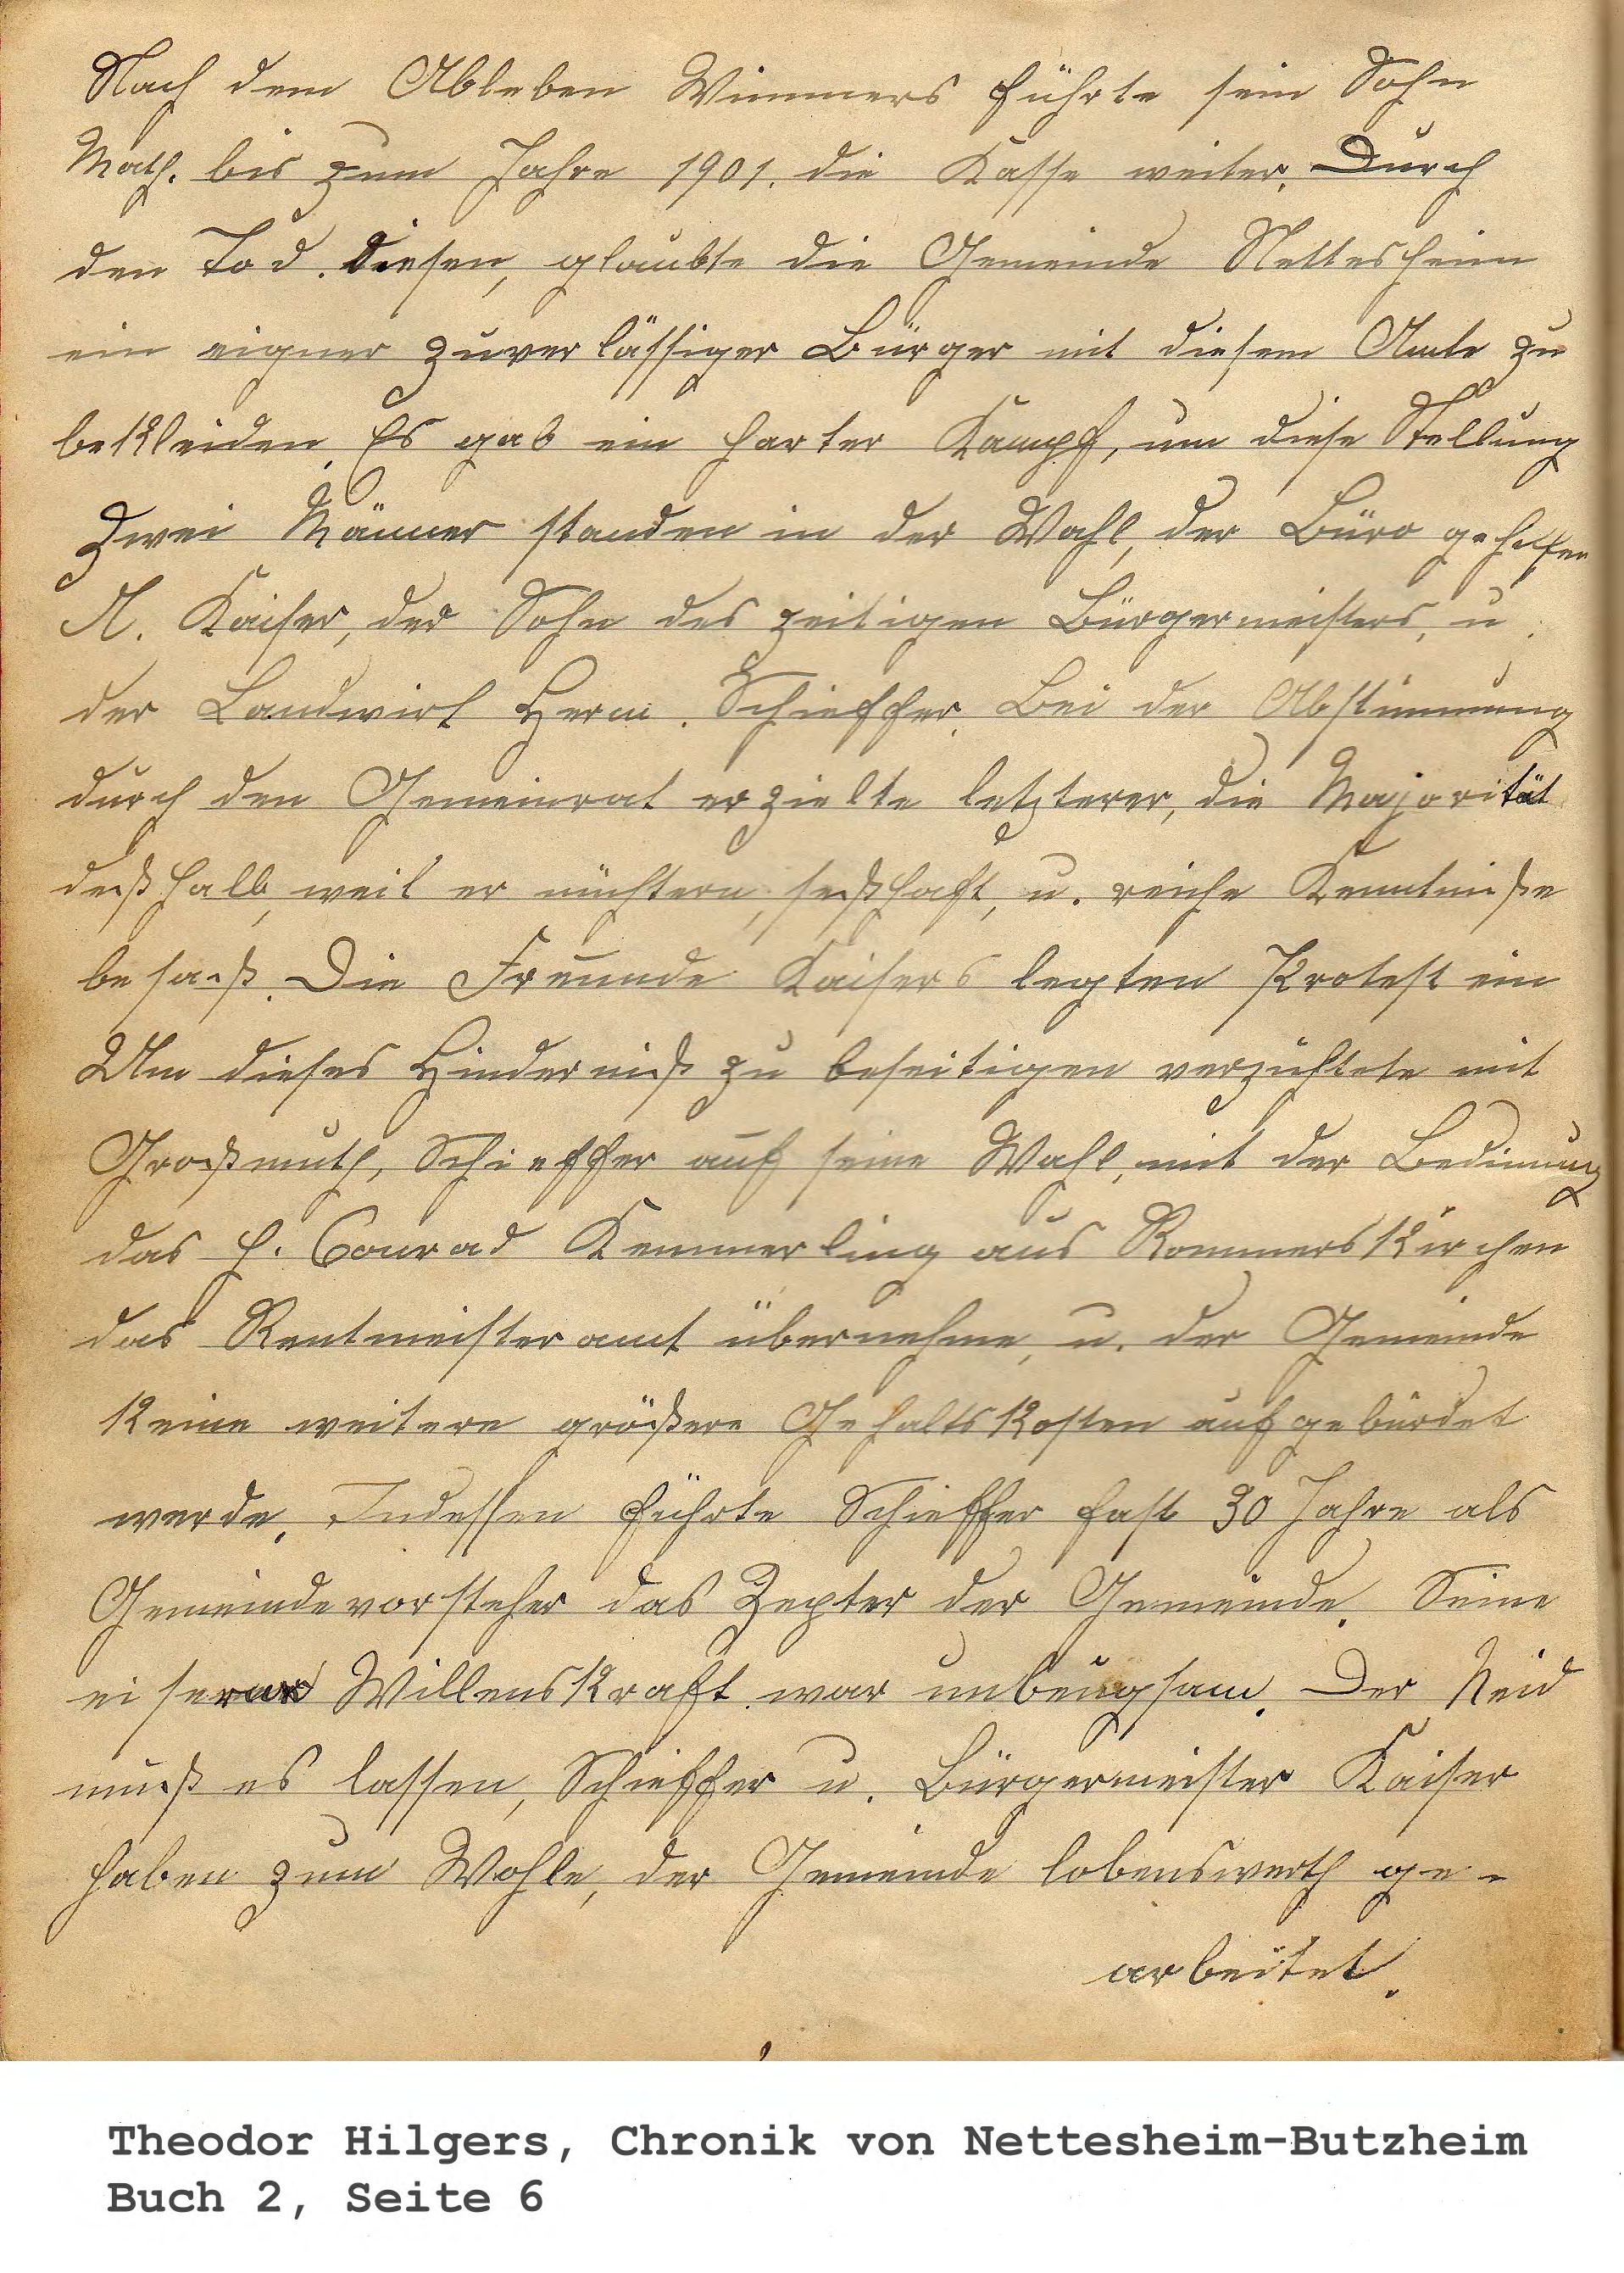 Nach dem Ableben Wimmers führte sein Sohn
Math. bis zum Jahre 1901. die Kasse weiter. Durch
den Tod. diesen, glaubte die Gemeinde Nettesheim
ein eigner zuverlässiger Bürger mit diesem Amte zu
bekleiden. Es gab ein harter Kampf, um diese Stellung
Zwei Männer standen in der Wahl, der Büro gehilfen
A. Kaiser, der Sohn des zeitigen Bürgermeisters, u.
der Landwirt Herm. Schieffer. Bei der Abstimmung
durch den Gemeinrat erzielte letzterer, die Majorität
deßhalb, weil er nüchtern, seßhaft, u. reiche Kenntniße
besaß. Die Freunde Kaisers legten Protest ein
Um dieses Hinderniß zu beseitigen verzichtete mit
Großmuth, Schieffer auf seine Wahl, mit der Bedinnung
das H. Conrad Kemmerling aus Rommerskirchen
das Rentmeisteramt übernehme, u. der Gemeinde
keine weitere größere Gehaltskosten aufgebürdet
werde. Indessen führte Schieffer fast 30 Jahre als
Gemeindevorsteher das Zepter der Gemeinde. Seine
eiserne Willenskraft war unbeugsam. Der Neid
muß es lassen, Schieffer u. Bürgermeister Kaiser
haben zum Wohle, der Gemeinde lobenswerth ge-
arbeitet.
Theodor Hilgers, Chronik von Nettesheim-Butzheim
Buch 2, Seite 6